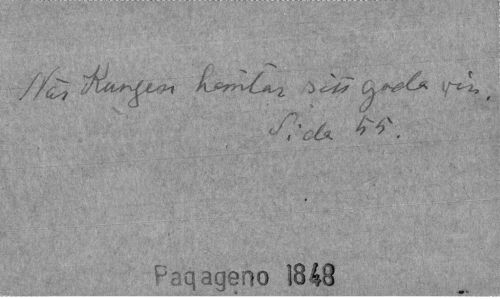 När Kungen hemtar sitt goda vin.
Sida 55.
Paqageno 1848